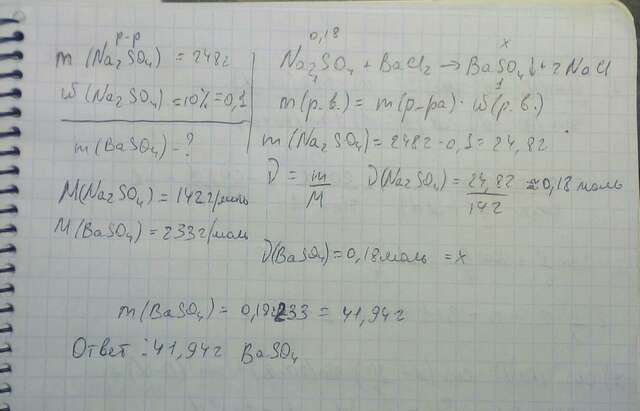 р-р
m (Na₂SO₄) = 248г
ω (Na₂SO₄) = 10% = 0,1
m (BaSO₄) - ?
M(Na₂SO₄) = 142г/моль
M(BaSO₄) = 233г/моль
0,18 x
Na₂SO₄ + BaCl₂ → BaSO₄↓ + 2NaCl
1 1
m(р.в.) = m(р-ра) · ω(р.в.)
m(Na₂SO₄) = 248г · 0,1 = 24,8г
ν = m/M ν(Na₂SO₄) = 24,8г/142 ≈ 0,18 моль
ν(BaSO₄) = 0,18 моль = x
m(BaSO₄) = 0,18·233 = 41,94г
Ответ: 41,94г BaSO₄